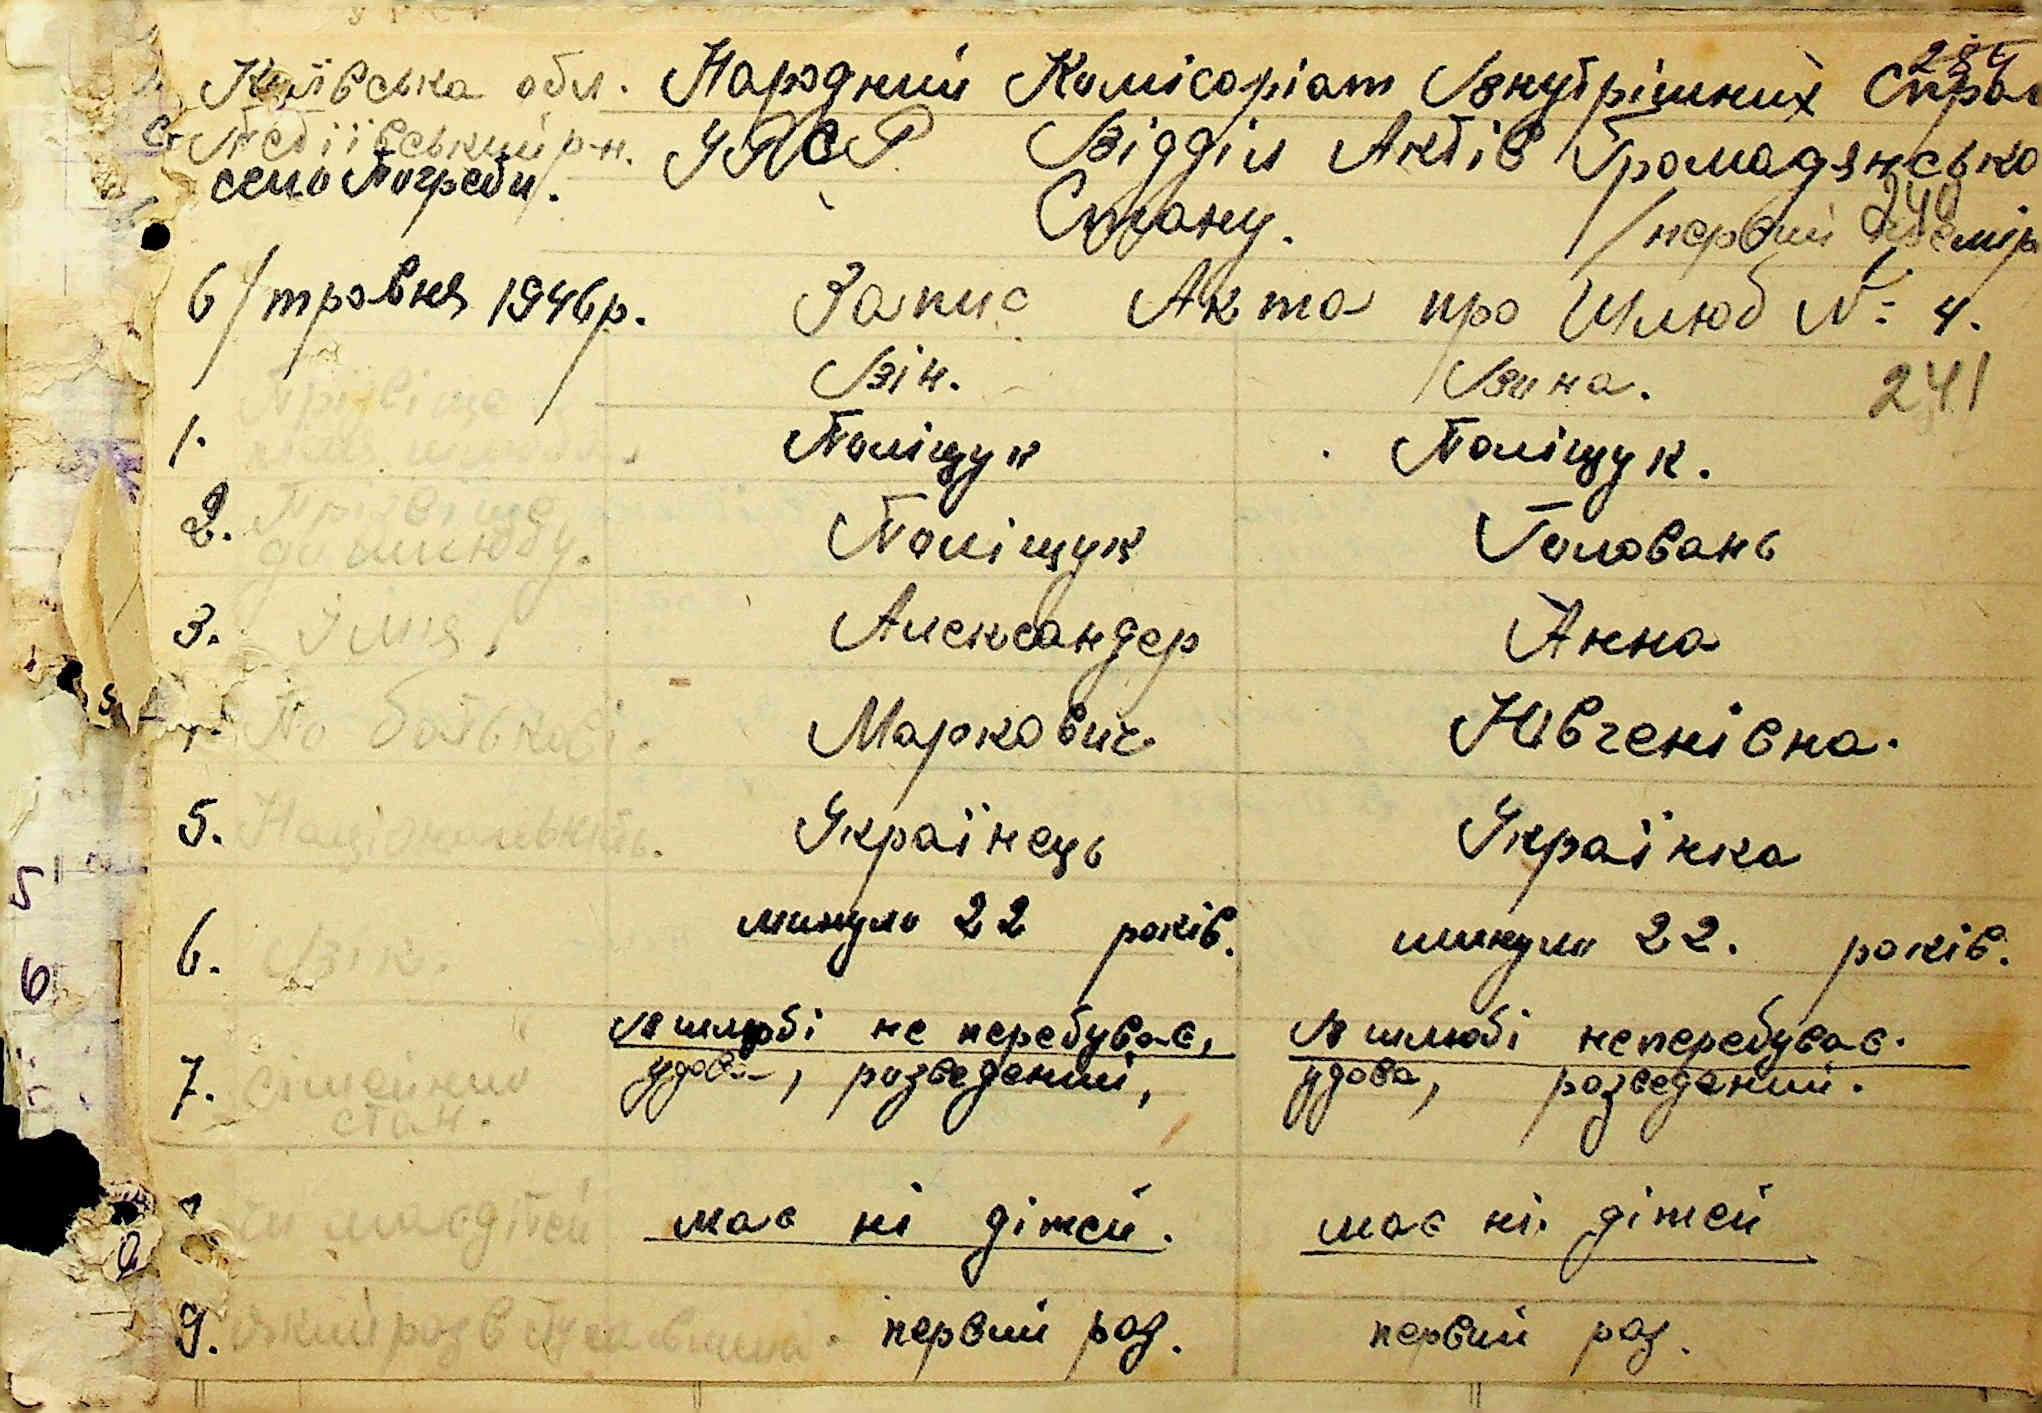 284
Київська обл. Народний Комісаріат Внутрішніх Справ
Тетіївський р-н. УРСР Відділ Актів Громадянсько
село Погреби. Стану.
240
/первий
6/травня 1946р. Запис Акта про Шлюб № 4.
Він. Вона. 241
1. Прізвіще після шлюбу. Поліщук Поліщук.
2. Прізвіще до шлюбу. Поліщук Головань
3. Імня Александер Анна
По батькові. Маркович Ювгенівна.
5. Національність. Українець Українка
6. Вік. минуло 22 років. минуло 22. років.
7. Сімейний стан. В шлюбі не перебуває, В шлюбі неперебуває.
удова, розведений, удова, розведений.
чи має дітей має ні дітей. має ні. дітей
9. який раз в первий раз. первий раз.
5
6